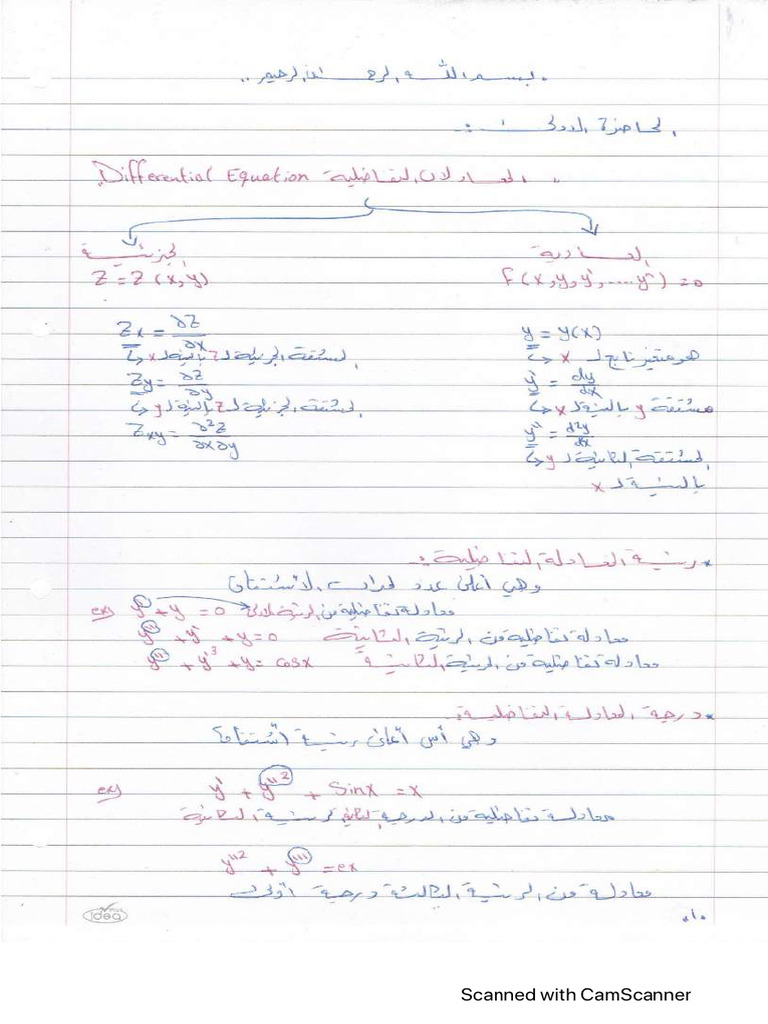 بسم الله الرحمن الرحيم ..
المحاضرة الأولى :
المعادلات التفاضلية Differential Equation
العادية
F(x,y,y',....yⁿ) = 0
y = y(x)
هو متغير تابع لـ x
y' = dy/dx
مشتقة y بالنسبة لـ x
y'' = d²y/dx
المشتقة الثانية لـ y
بالنسبة لـ x
الجزئية
Z = Z(x,y)
Zx = ∂Z/∂x
المشتقة الجزئية لـ Z بالنسبة لـ x
Zy = ∂Z/∂y
المشتقة الجزئية لـ Z بالنسبة لـ y
Zxy = ∂²Z/∂x∂y
* رتبة المعادلة التفاضلية :
وهي أعلى عدد لمرات الاشتقاق
ex) y' + y = 0 معادلة تفاضلية من الرتبة الأولى
y'' + y' + y = 0 معادلة تفاضلية من الرتبة الثانية
y'' + y'³ + y = cosx معادلة تفاضلية من الرتبة الثانية
* درجة المعادلة التفاضلية :
وهي أس أعلى رتبة اشتقاق
ex) y' + y''² + Sinx = x
معادلة تفاضلية من الدرجة الثانية الرتبة الثانية
y''² + y''' = ex
معادلة من الرتبة الثالثة درجة أولى
idea
.١.
Scanned with CamScanner